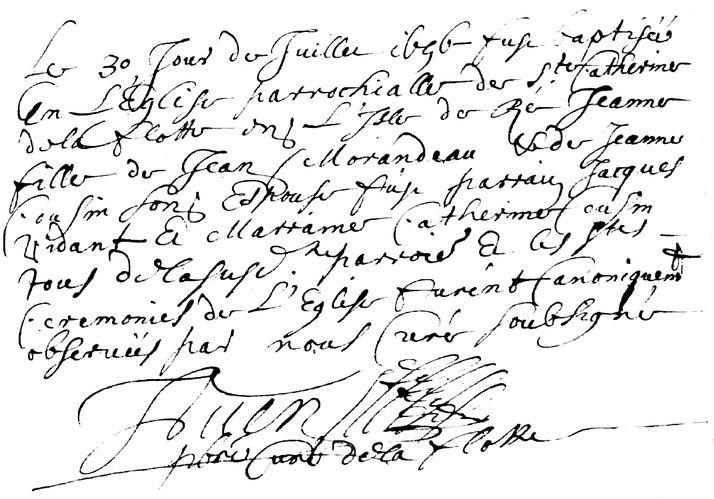 Le 30 Jour de Juillet 1696 fust baptisée
En L'Église parrochialle de Ste Catherine
de la flotte en L'Isle de Ré Jeanne
fille de Jean Morandeau & de Jeanne
Cousin son Espouse fust parrain Jacques
Vidant Et Marraine Catherine Cousin
tous de la susd. parroisse Et les stes
ceremonies de L'Eglise furent Canoniquemt
observées par nous Curé soubsigné
pbre Curé de la flotte